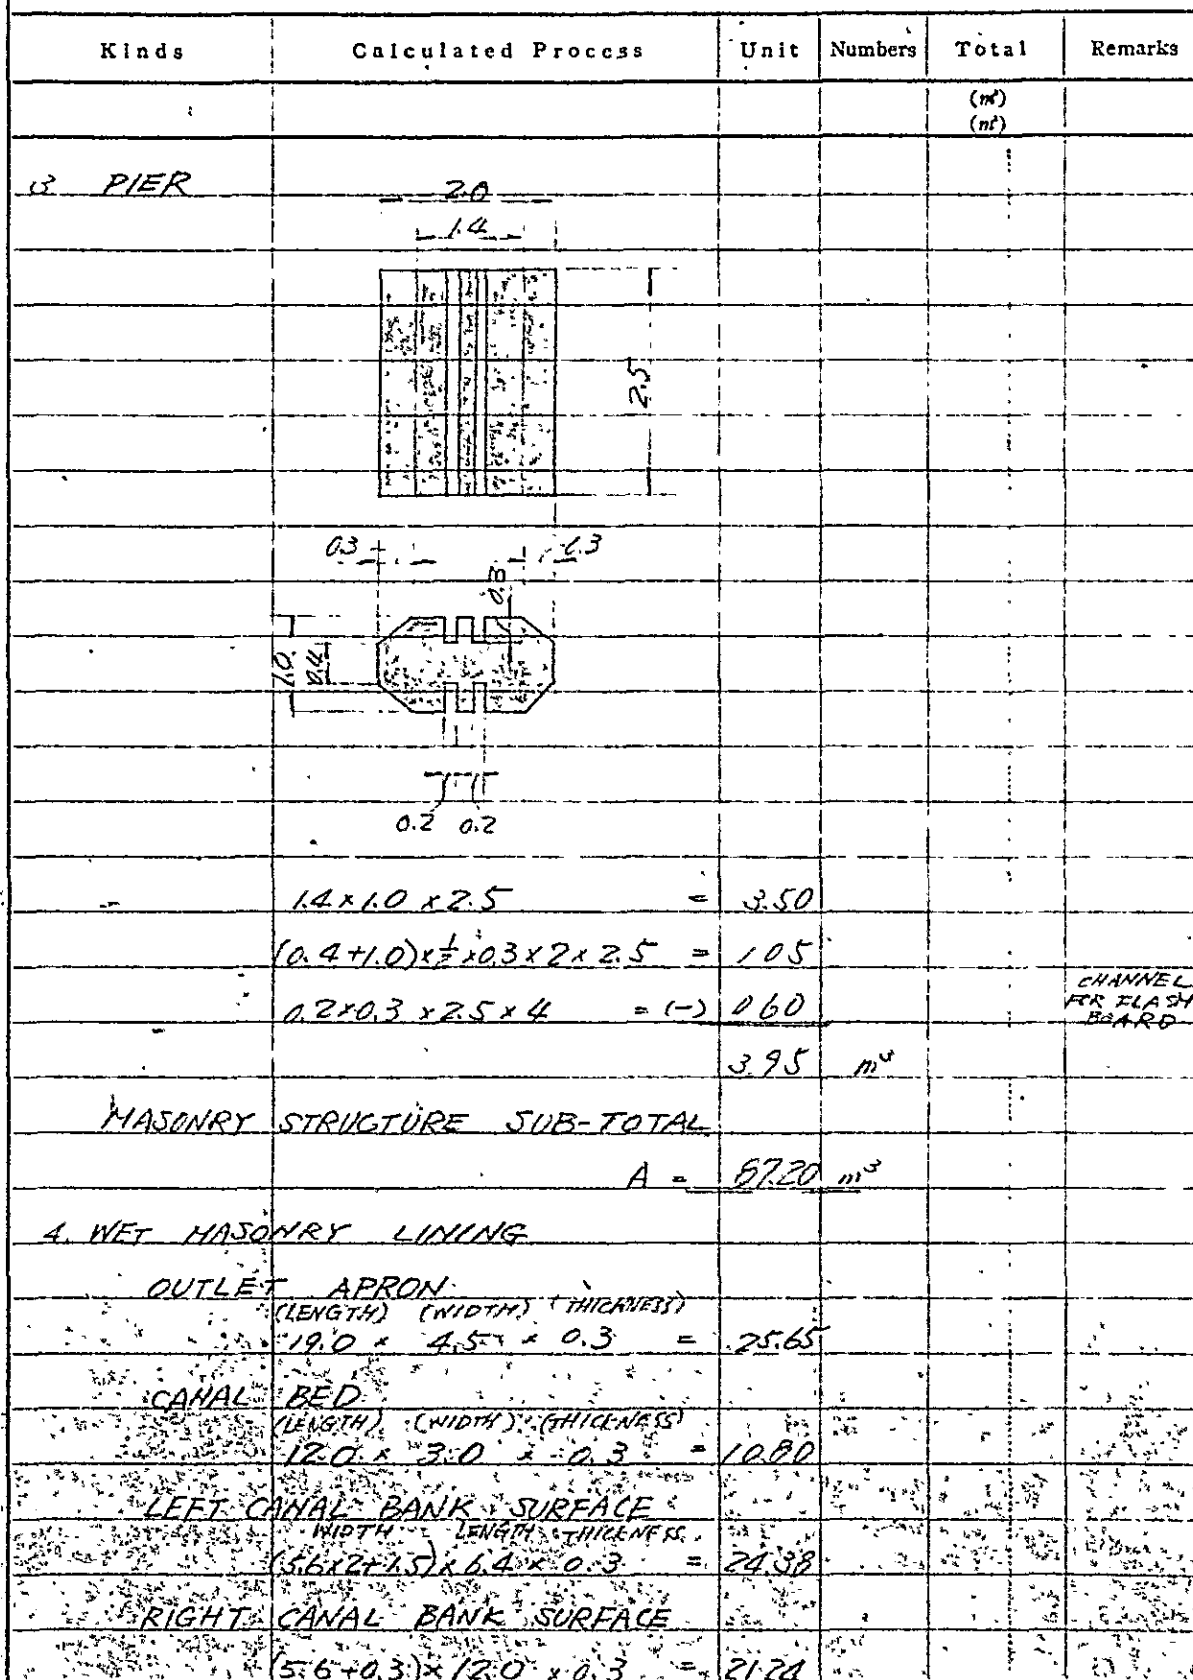 Kinds Calculated Process Unit Numbers Total Remarks
(m³)
(m²)
13 PIER
2.0
1.4
2.5
0.3 0.3
0.3
1.0
0.4
0.2 0.2
1.4 × 1.0 × 2.5 = 3.50
(0.4+1.0)×½×0.3×2×2.5 = 1.05
0.2×0.3×2.5×4 = (-) 0.60 CHANNEL
FOR FLASH
BOARD
3.95 m³
MASONRY STRUCTURE SUB-TOTAL
A = 87.20 m³
4. WET MASONRY LINING
OUTLET APRON
(LENGTH) (WIDTH) (THICKNESS)
19.0 × 4.5 × 0.3 = 25.65
CANAL BED
(LENGTH) (WIDTH) (THICKNESS)
12.0 × 3.0 × 0.3 = 10.80
LEFT CANAL BANK SURFACE
WIDTH LENGTH THICKNESS
(5.6×2+1.5)×6.4×0.3 = 24.38
RIGHT CANAL BANK SURFACE
(5.6+0.3)×12.0×0.3 = 21.24